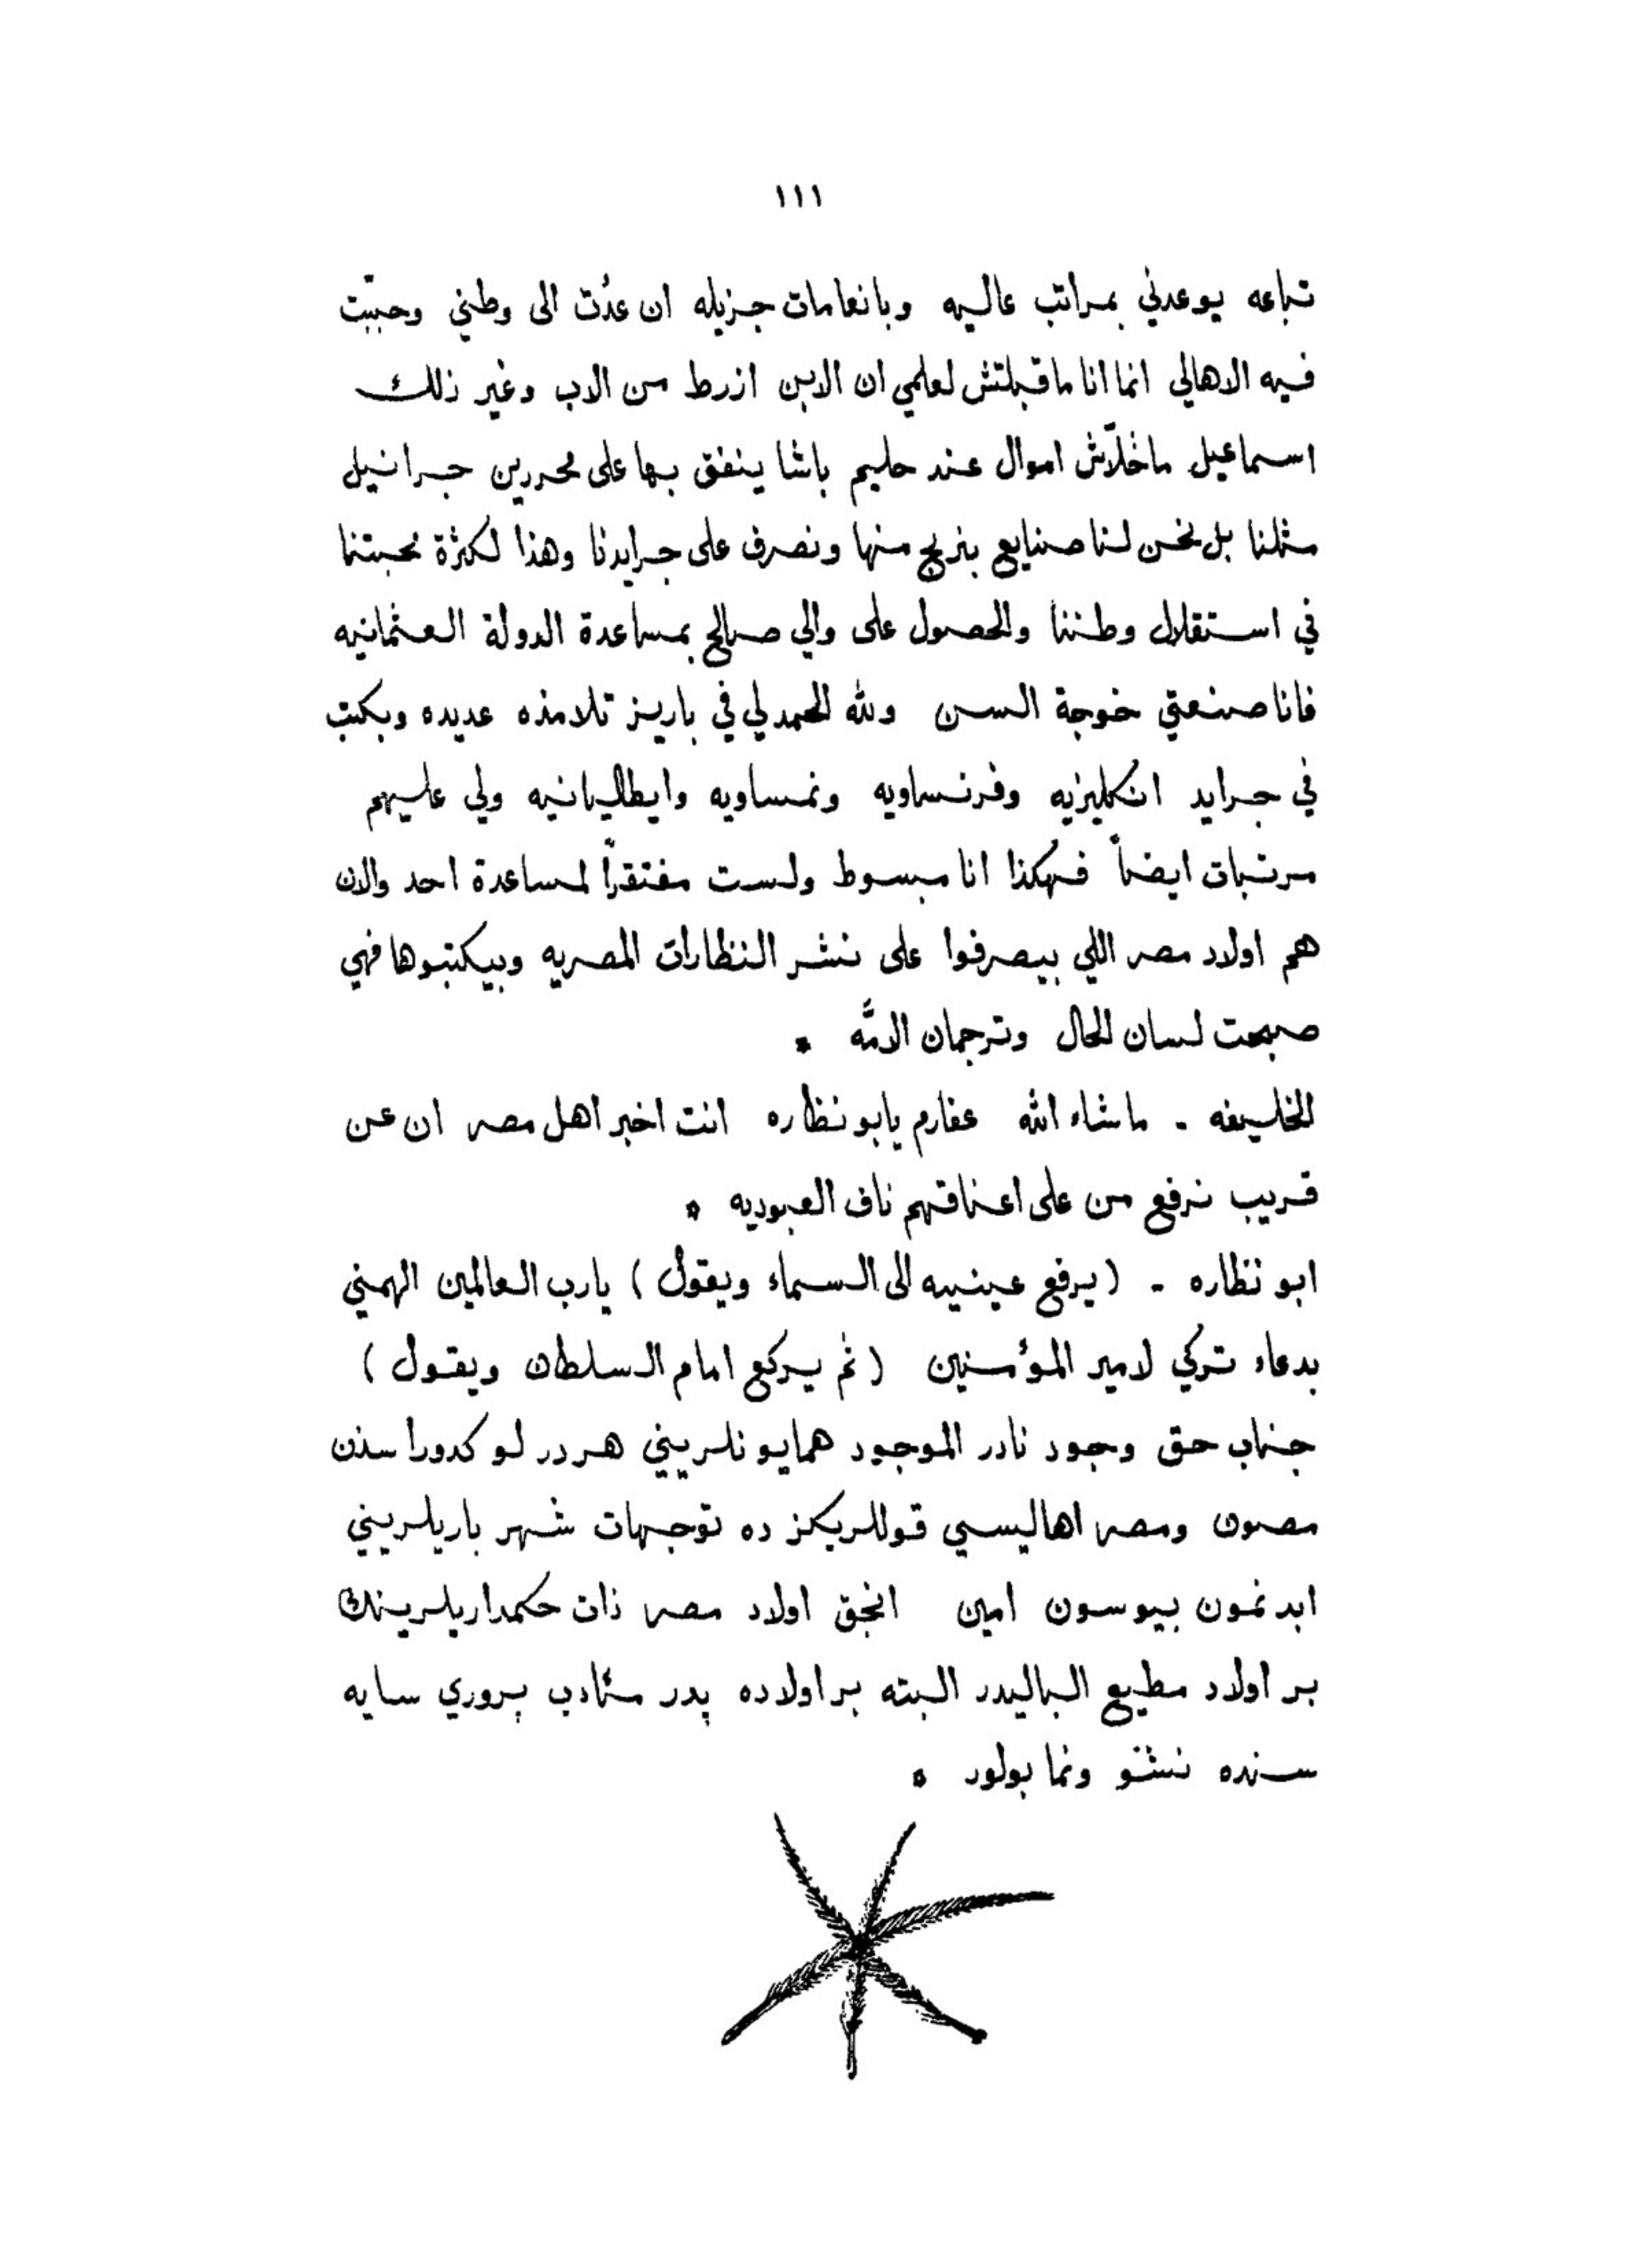 ١١١
تباعه يوعدني بمراتب عاليه وبانعامات جزيله ان عدُت الى وطني وحببّت
فيه الاهالي انما انا ماقبلتش لعلمي ان الابن ازرط من الاب وغير ذلك
اسماعيل ماخلّاش اموال عند حليم باشا ينفق بها على محررين جرانيل
مثلنا بل نحن لنا صنايع بنربح منها ونصرف على جرايدنا وهذا لكثرة محبتنا
في استقلال وطننا والحصول على والي صالح بمساعدة الدولة العثمانيه
فانا صنعتي خوجة السن ولله الحمد لي في باريز تلامذه عديده وبكتب
في جرايد انكليزيه وفرنساويه ونمساويه وايطاليانيه ولي عليهم
مرتبات ايضاً فهكذا انا مبسوط ولست مفتقراً لمساعدة احد والان
هم اولاد مصر اللي بيصرفوا على نشر النظارات المصريه وبيكتبوها فهي
صبحت لسان الحال وترجمان الامَّه *
الخليفه - ماشاء الله عفارم يابو نظاره انت اخبر اهل مصر ان عن
قريب نرفع من على اعناقهم ناف العبوديه *
ابو نظاره - (يرفع عينيه الى السماء ويقول) يارب العالمين الهمني
بدعاء تركي لامير المؤمنين (ثم يركع امام السلطان ويقول)
جناب حق وجود نادر الموجود همايونلريني هردرلو كدوراسندن
مصون ومصر اهاليسي قوللريكز ده توجهات شهرياريلريني
ابدنمون بيوسون امين انجق اولاد مصر ذات حكمداريلرينك
بر اولاد مطيع الباليدر البته بر اولاده پدر متادب پروري سايه
سنده نشئو ونما بولور *